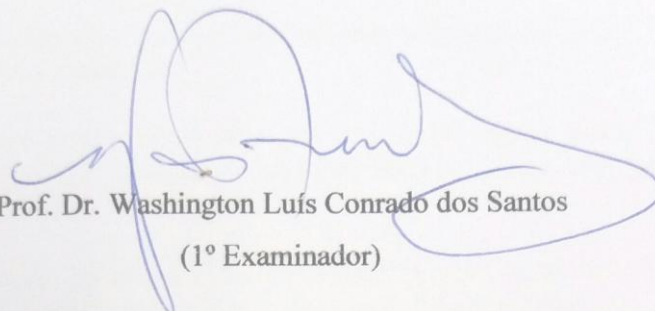 Prof. Dr. Washington Luís Conrado dos Santos
(1º Examinador)